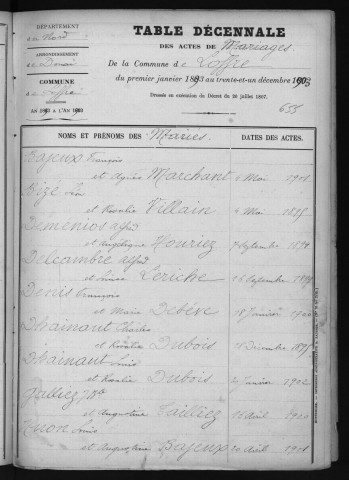 DÉPARTEMENT
du Nord
ARRONDISSEMENT
de Douai
COMMUNE
de Loffre
TABLE DÉCENNALE
DES ACTES DE Mariages
De la Commune de Loffre
du premier janvier 1893 au trente-et-un décembre 1903
Dressée en exécution du Décret du 20 juillet 1807.
655
NOMS ET PRÉNOMS DES Mariés
DATES DES ACTES.
Bajeux François
et Agnès Marchant Mai 1901
Bize Léon
et Rosalie Villain Mai 1895
Demenios Alfred
et Angélique Houriez 7 septembre
Delcambre Alfred
et Louise Leriche 16 septembre
Denis François
et Marie Debève 18 Janvier
Dhainaut Charles
et Rosalie Dubois Décembre
Dhainaut Louis
et Rosalie Dubois Janvier 1902
Galliez
et Augustine Tailliez avril
Huon Louis
et Augustine Bajeux avril 1901